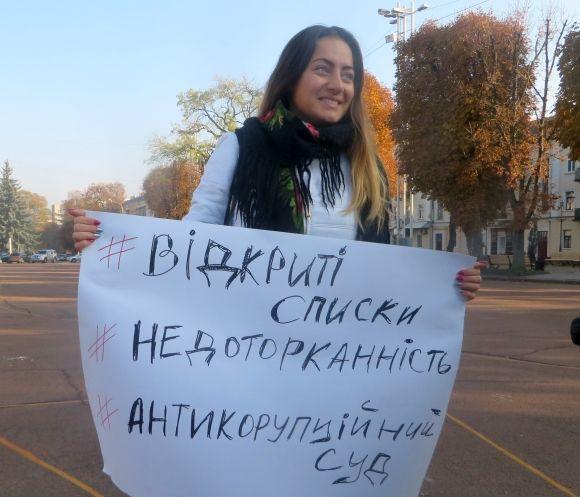 #ВІДКРИТІ
СПИСКИ
#НЕДОТОРКАННІСТЬ
#АНТИКОРУПЦІЙНИЙ
СУД